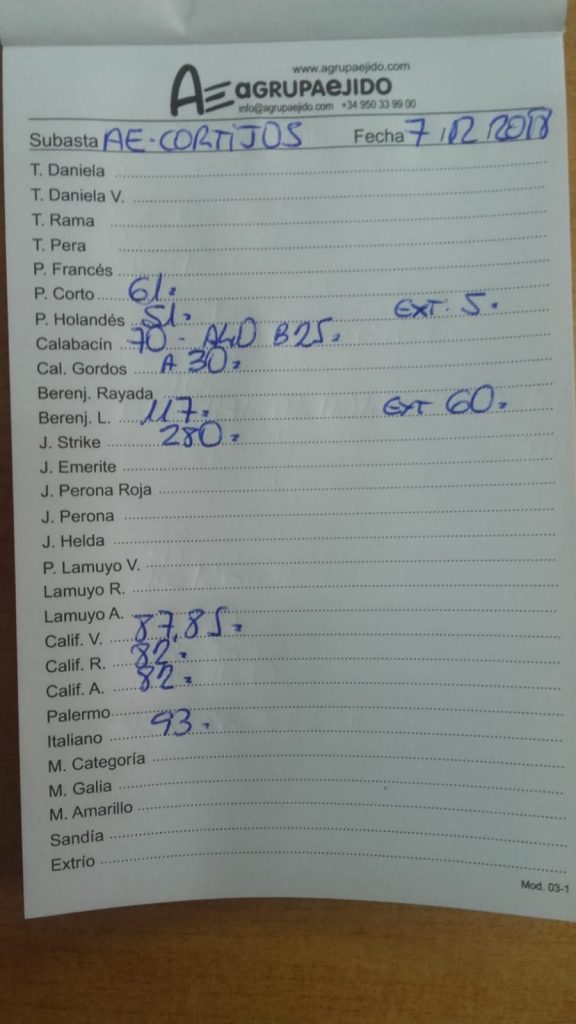 www.agrupaejido.com
AE AGRUPAEJIDO
info@agrupaejido.com +34 950 33 99 00
Subasta AE-CORTIJOS Fecha 7/12 2018
T. Daniela
T. Daniela V.
T. Rama
T. Pera
P. Francés
P. Corto 61.
P. Holandés 51. EXT. 5.
Calabacín 70 - A40 B25.
Cal. Gordos A 30.
Berenj. Rayada
Berenj. L. 117. EXT 60.
J. Strike 280.
J. Emerite
J. Perona Roja
J. Perona
J. Helda
P. Lamuyo V.
Lamuyo R.
Lamuyo A.
Calif. V. 87,85.
Calif. R. 82.
Calif. A. 82.
Palermo
Italiano 93.
M. Categoría
M. Galia
M. Amarillo
Sandía
Extrío
Mod. 03-1